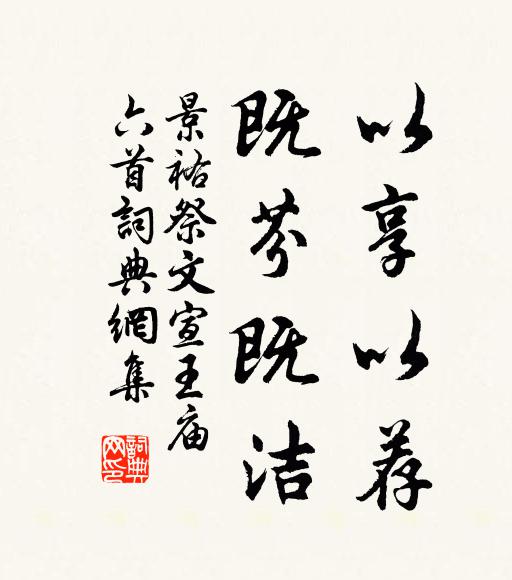 以享以荐
既芬既洁
景祐祭文宣王庙
六首詞典網集
詞典网印